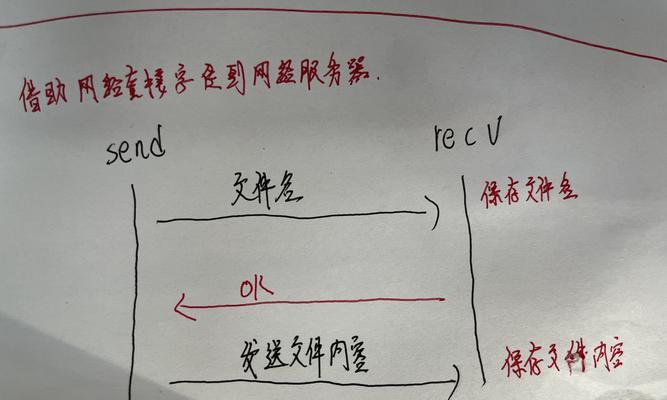 借助网络套接字送到网络服务器.
send
recv
文件名
保存文件名
OK
发送文件内容
保存文件内容